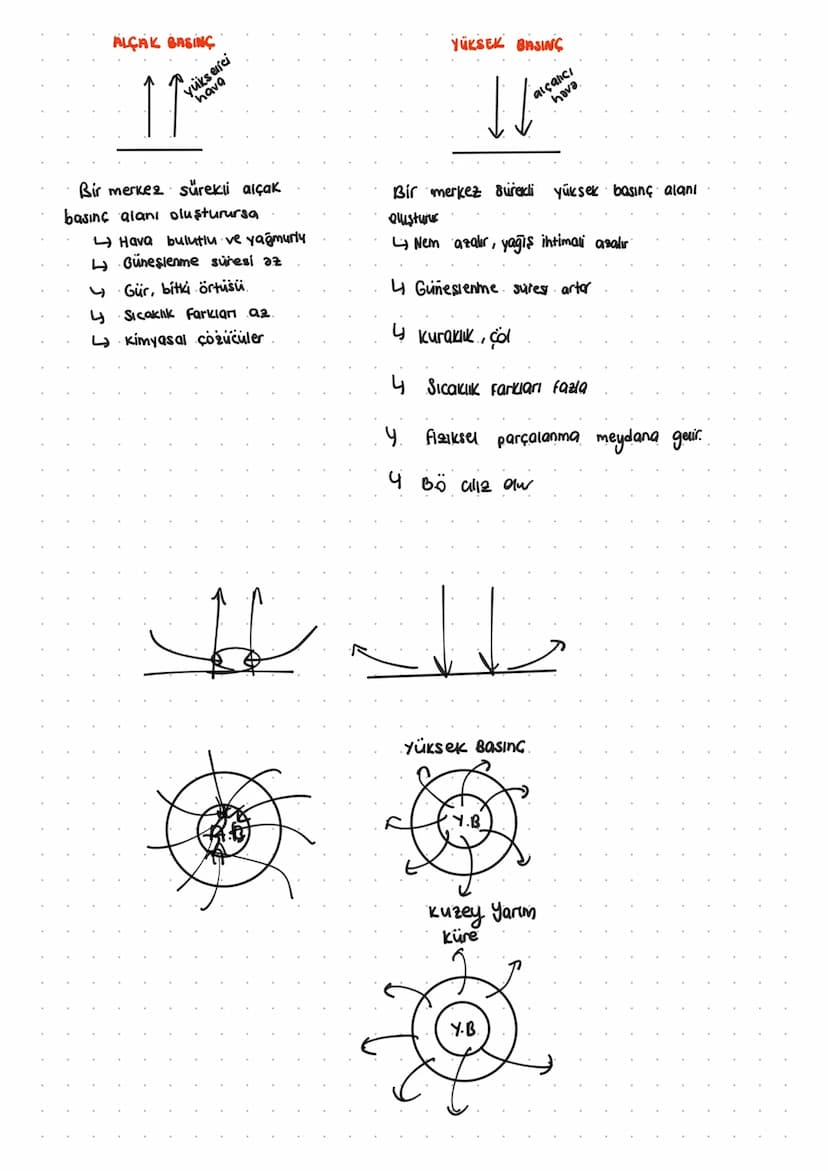 ALÇAK BASINÇ
yükselici
hava
Bir merkez sürekli alçak
basınç alanı oluşturursa
↳ Hava bulutlu ve yağmurlu
↳ Güneşlenme süresi az
↳ Gür, bitki örtüsü
↳ Sıcaklık Farkları az
↳ Kimyasal çözücüler
YÜKSEK BASINÇ
alçalıcı
hava
Bir merkez sürekli yüksek basınç alanı
oluşturur
↳ Nem azalır, yağış ihtimali azalır
↳ Güneşlenme süresi artar
↳ Kuraklık, çöl
↳ Sıcaklık Farkları fazla
↳ Fiziksel parçalanma meydana gelir.
↳ BÖ cılız olur
A.B
Yüksek Basınç
Y.B
Kuzey Yarım
Küre
Y.B